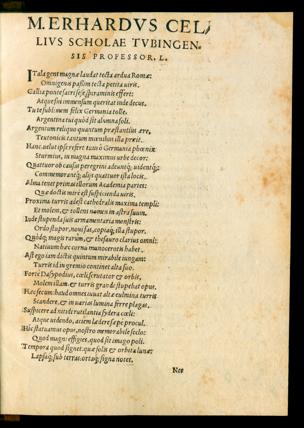 M. ERHARDVS CEL,
LIVS SCHOLAE TVBINGEN,
SIS PROFESSOR. L.
ITala gens magnæ laudat tecta ardua Romæ:
Omnigenis passim tecta petita viris.
Gallia
Atque sui immensum queritat inde decus.
Tu te sublimem felix Germania tolle.
Argentina tui quòd sit alumna soli.
Argentum reliquo quantum præstantius ære,
Teutonicis tantum mœnibus illa præit.
Hanc velut ipse refert tuus ô Germania phœnix
Sturmius, in magna maximus urbe decor:
Quattuor ob causas peregrini adeuntq; videntq;:
Commemorantq; alijs quattuor ista locis.
Alma tenet primas illorum Academia partes:
Quæ doctis mirè est suspicienda viris.
Proxima turris adest cathedralis maxima templi:
Et molem, & tollens nomen in astra suum.
Inde stupenda suis armamentaria monstris:
Ordo stupor, novitas, copiaq; illa stupor.
Quódq; magis rarum, & thesauro clarius omni:
Nativum hæc cornu munocerotis habet.
Ast ego iam dictis quintum mirabile iungam:
Turris id in gremio continet alta suo.
Forte Dasypodius, cœli scrutator & orbis,
Molem illam & turris grande stupebat opus.
Hæc secum: haud omnes iuvat alta culmina turris
Scandere, & in varias lumina ferre plagas.
Suspicere ad nitidi rutilantia sydera cœli:
Atque videndo, aciem lædere sæpe procul.
Hic statuamus opus, nostro memorabile seclo:
Quod magni effigies, quod sit imago poli.
Tempora quod signet: quæ solis & orbita lunæ:
Lapsaq; sub terras, ortaq; signa notet.
Nec